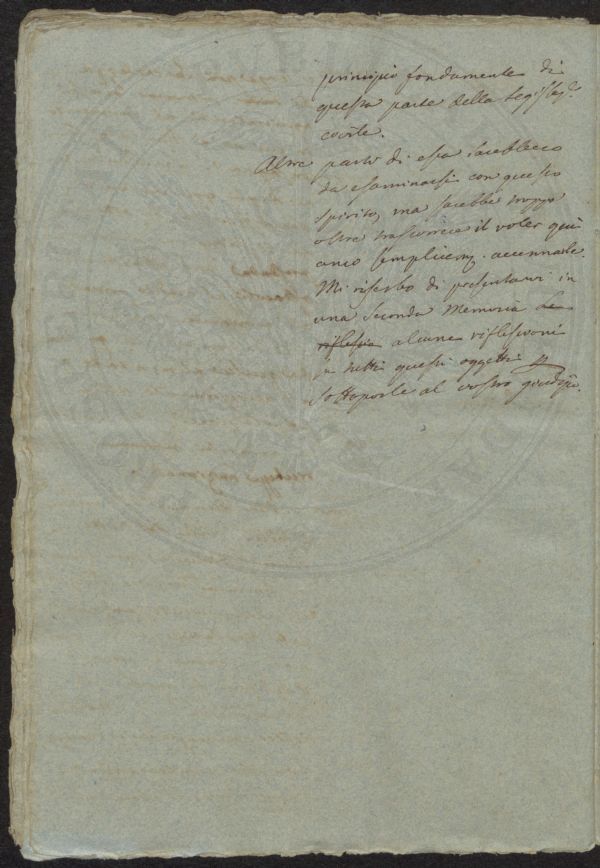 principio fondamentale di
questa parte della
Altre parti di essa sarebbero
da esaminarsi con questo
spirito, ma sarebbe troppo
oltre trascorrere il voler qui
anco semplicem. accennarle.
Mi riserbo di presentarvi in
una seconda Memoria al-
riflessio alcune riflessioni
su tutti questi oggetti e
sottoporle al vostro giudizio.